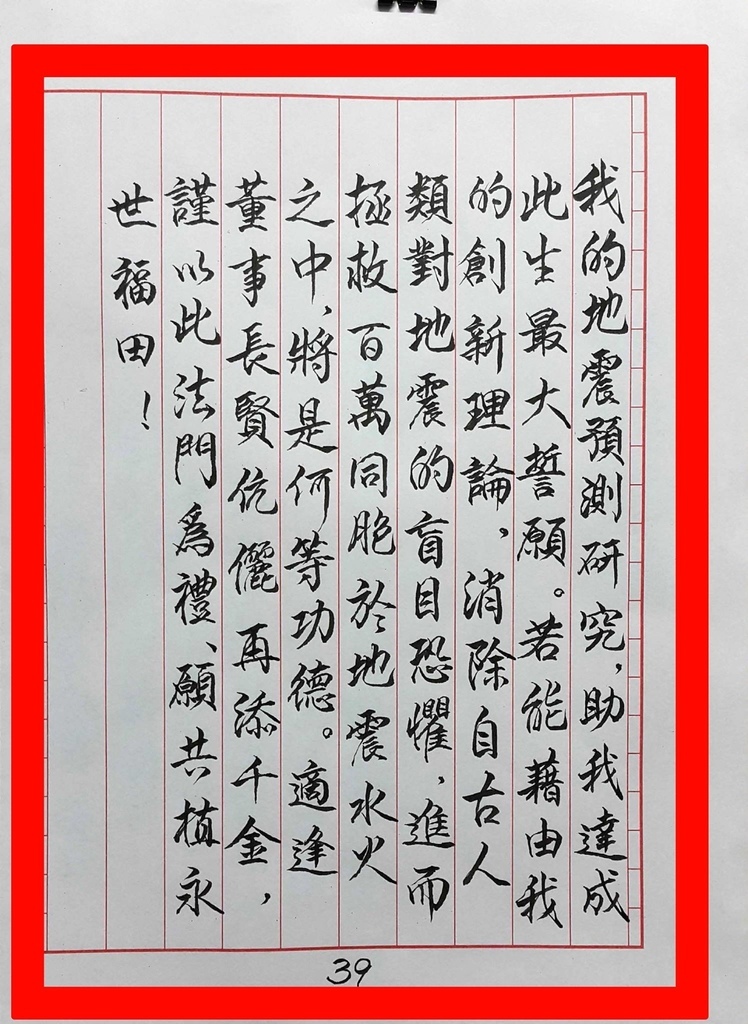 我的地震預測研究，助我達成
此生最大誓願。若能藉由我
的創新理論，消除自古人
類對地震的盲目恐懼，進而
拯救百萬同胞於地震水火
之中，將是何等功德。適逢
董事長賢伉儷再添千金，
謹以此法門爲禮、願共植永
世福田！
39